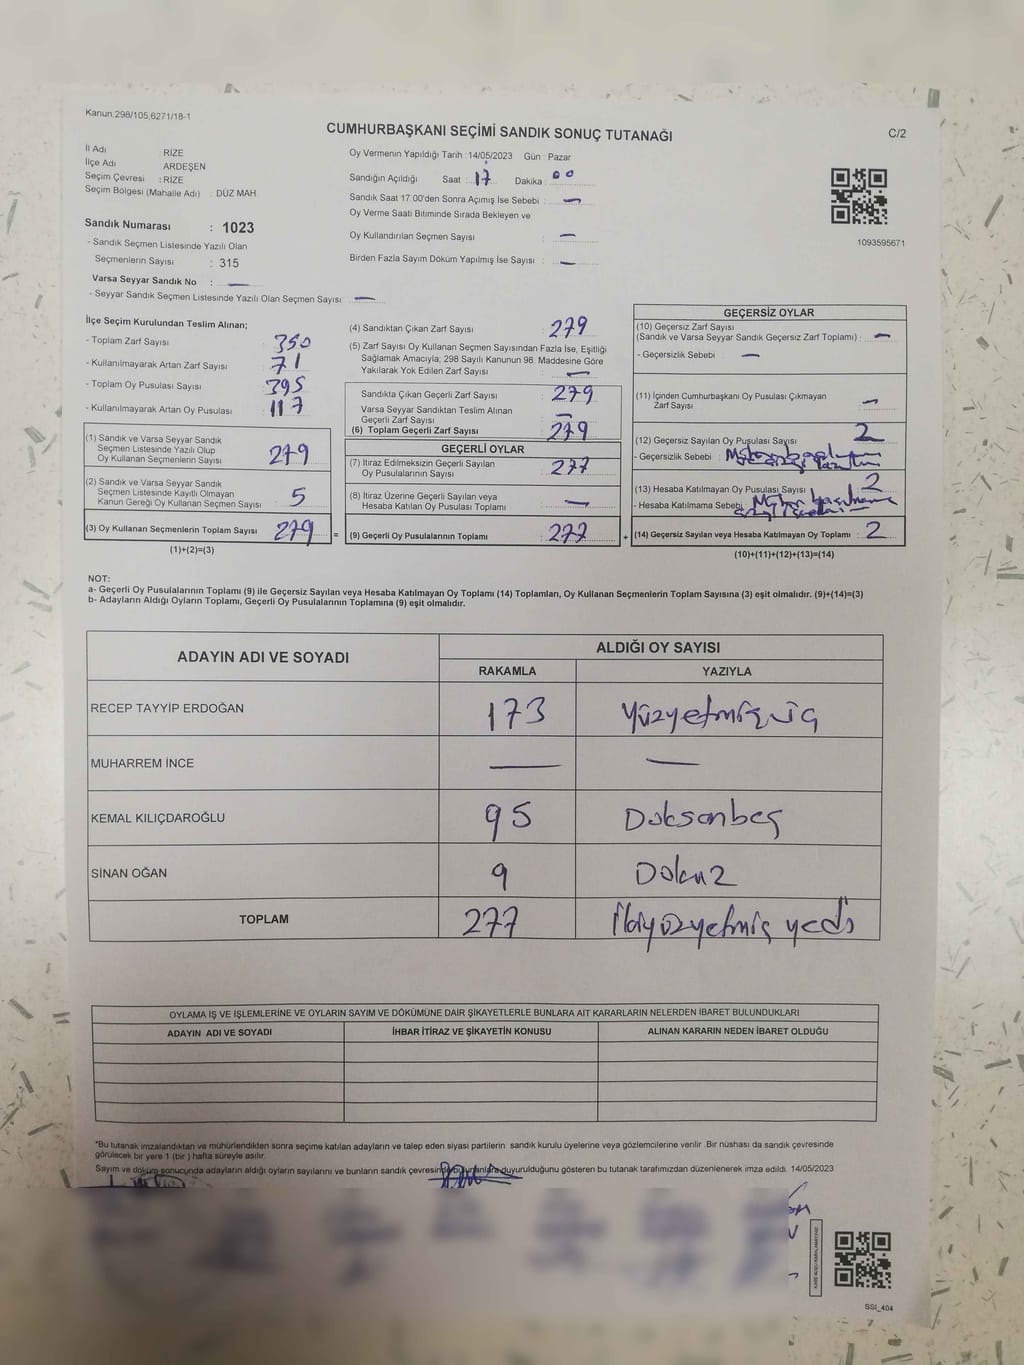 Kanun:298/105,6271/18-1
CUMHURBAŞKANI SEÇİMİ SANDIK SONUÇ TUTANAĞI
C/2
İl Adı RİZE
İlçe Adı ARDEŞEN
Seçim Çevresi : RİZE
Seçim Bölgesi (Mahalle Adı) : DÜZ MAH.
Oy Vermenin Yapıldığı Tarih : 14/05/2023 Gün : Pazar
Sandığın Açıldığı Saat : 17 Dakika : 00
Sandık Saat 17:00'den Sonra Açımış İse Sebebi : —
Oy Verme Saati Bitiminde Sırada Bekleyen ve
Oy Kullandırılan Seçmen Sayısı : —
Birden Fazla Sayım Döküm Yapılmış İse Sayısı : —
1093595671
Sandık Numarası : 1023
- Sandık Seçmen Listesinde Yazılı Olan
Seçmenlerin Sayısı : 315
Varsa Seyyar Sandık No : —
- Seyyar Sandık Seçmen Listesinde Yazılı Olan Seçmen Sayısı: —
İlçe Seçim Kurulundan Teslim Alınan;
- Toplam Zarf Sayısı : 350
- Kullanılmayarak Artan Zarf Sayısı : 71
- Toplam Oy Pusulası Sayısı : 395
- Kullanılmayarak Artan Oy Pusulası : 117
(1) Sandık ve Varsa Seyyar Sandık
Seçmen Listesinde Yazılı Olup
Oy Kullanan Seçmenlerin Sayısı : 279
(2) Sandık ve Varsa Seyyar Sandık
Seçmen Listesinde Kayıtlı Olmayan
Kanun Gereği Oy Kullanan Seçmen Sayısı : 5
(3) Oy Kullanan Seçmenlerin Toplam Sayısı : 279 =
(1)+(2)=(3)
(4) Sandıktan Çıkan Zarf Sayısı : 279
(5) Zarf Sayısı Oy Kullanan Seçmen Sayısından Fazla İse, Eşitliği
Sağlamak Amacıyla; 298 Sayılı Kanunun 98. Maddesine Göre
Yakılarak Yok Edilen Zarf Sayısı : —
Sandıkta Çıkan Geçerli Zarf Sayısı : 279
Varsa Seyyar Sandıktan Teslim Alınan
Geçerli Zarf Sayısı : —
(6) Toplam Geçerli Zarf Sayısı : 279
GEÇERLİ OYLAR
(7) İtiraz Edilmeksizin Geçerli Sayılan
Oy Pusulalarının Sayısı : 277
(8) İtiraz Üzerine Geçerli Sayılan veya
Hesaba Katılan Oy Pusulası Toplamı : —
(9) Geçerli Oy Pusulalarının Toplamı : 277 +
GEÇERSİZ OYLAR
(10) Geçersiz Zarf Sayısı
(Sandık ve Varsa Seyyar Sandık Geçersiz Zarf Toplamı) : —
- Geçersizlik Sebebi : —
(11) İçinden Cumhurbaşkanı Oy Pusulası Çıkmayan
Zarf Sayısı : —
(12) Geçersiz Sayılan Oy Pusulası Sayısı : 2
- Geçersizlik Sebebi :
(13) Hesaba Katılmayan Oy Pusulası Sayısı : 2
- Hesaba Katılmama Sebebi:
(14) Geçersiz Sayılan veya Hesaba Katılmayan Oy Toplamı : 2
(10)+(11)+(12)+(13)=(14)
NOT:
a- Geçerli Oy Pusulalarının Toplamı (9) ile Geçersiz Sayılan veya Hesaba Katılmayan Oy Toplamı (14) Toplamları, Oy Kullanan Seçmenlerin Toplam Sayısına (3) eşit olmalıdır. (9)+(14)=(3)
b- Adayların Aldığı Oyların Toplamı, Geçerli Oy Pusulalarının Toplamına (9) eşit olmalıdır.
ADAYIN ADI VE SOYADI ALDIĞI OY SAYISI
RAKAMLA YAZIYLA
RECEP TAYYİP ERDOĞAN 173 Yüzyetmişüç
MUHARREM İNCE — —
KEMAL KILIÇDAROĞLU 95 Doksanbeş
SİNAN OĞAN 9 Dokuz
TOPLAM 277 İkiyüzyetmiş yedi
OYLAMA İŞ VE İŞLEMLERİNE VE OYLARIN SAYIM VE DÖKÜMÜNE DAİR ŞİKAYETLERLE BUNLARA AİT KARARLARIN NELERDEN İBARET BULUNDUKLARI
ADAYIN ADI VE SOYADI İHBAR İTİRAZ VE ŞİKAYETİN KONUSU ALINAN KARARIN NEDEN İBARET OLDUĞU
*Bu tutanak imzalandıktan ve mühürlendikten sonra seçime katılan adayların ve talep eden siyasi partilerin sandık kurulu üyelerine veya gözlemcilerine verilir. Bir nüshası da sandık çevresinde
görülecek bir yere 1 (bir) hafta süreyle asılır.
Sayım ve döküm sonucunda adayların aldığı oyların sayılarını ve bunların sandık çevresinde bulunanlara duyurulduğunu gösteren bu tutanak tarafımızdan düzenlenerek imza edildi. 14/05/2023
SSI_404